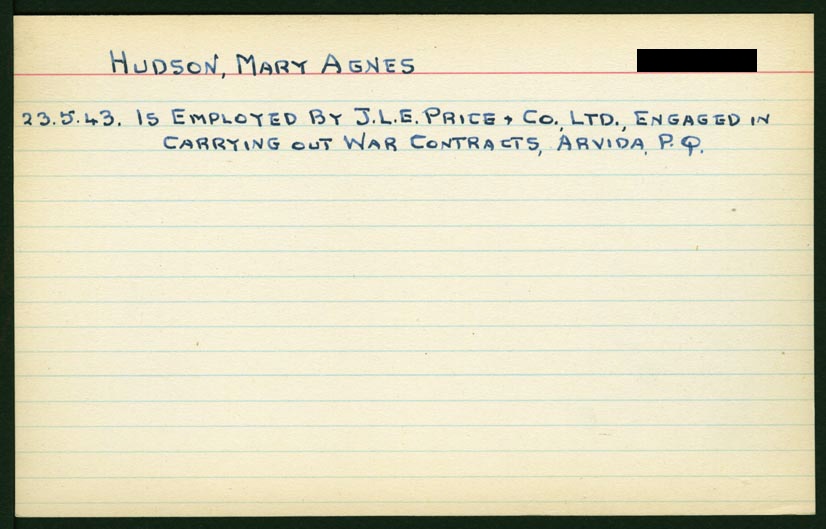 HUDSON, MARY AGNES
23.5.43. IS EMPLOYED BY J.L.E. PRICE & CO., LTD., ENGAGED IN
CARRYING OUT WAR CONTRACTS, ARVIDA, P.Q.